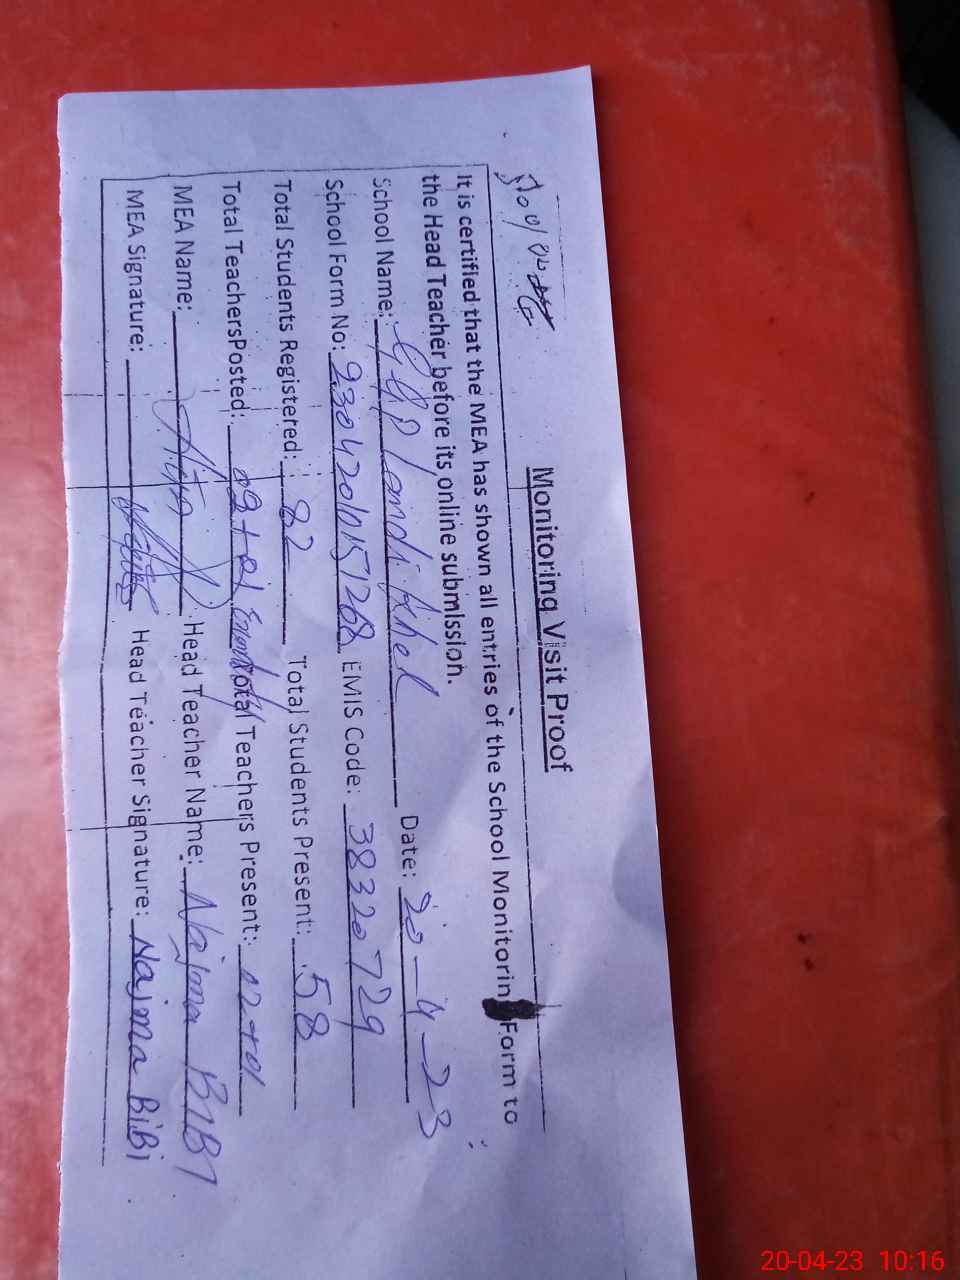 Monitoring Visit Proof
It is certified that the MEA has shown all entries of the School Monitorin Form to
the Head Teacher before its online submission.
School Name: Landi Khel Date: 20-4-23
School Form No: 23042010151268 EMIS Code: 38320729
Total Students Registered: 82 Total Students Present: 58
Total TeachersPosted: 02+01 Total Teachers Present: 02+01
MEA Name: Head Teacher Name: Najma BIBI
MEA Signature: Head Teacher Signature: Najma BiBi
20-04-23 10:16